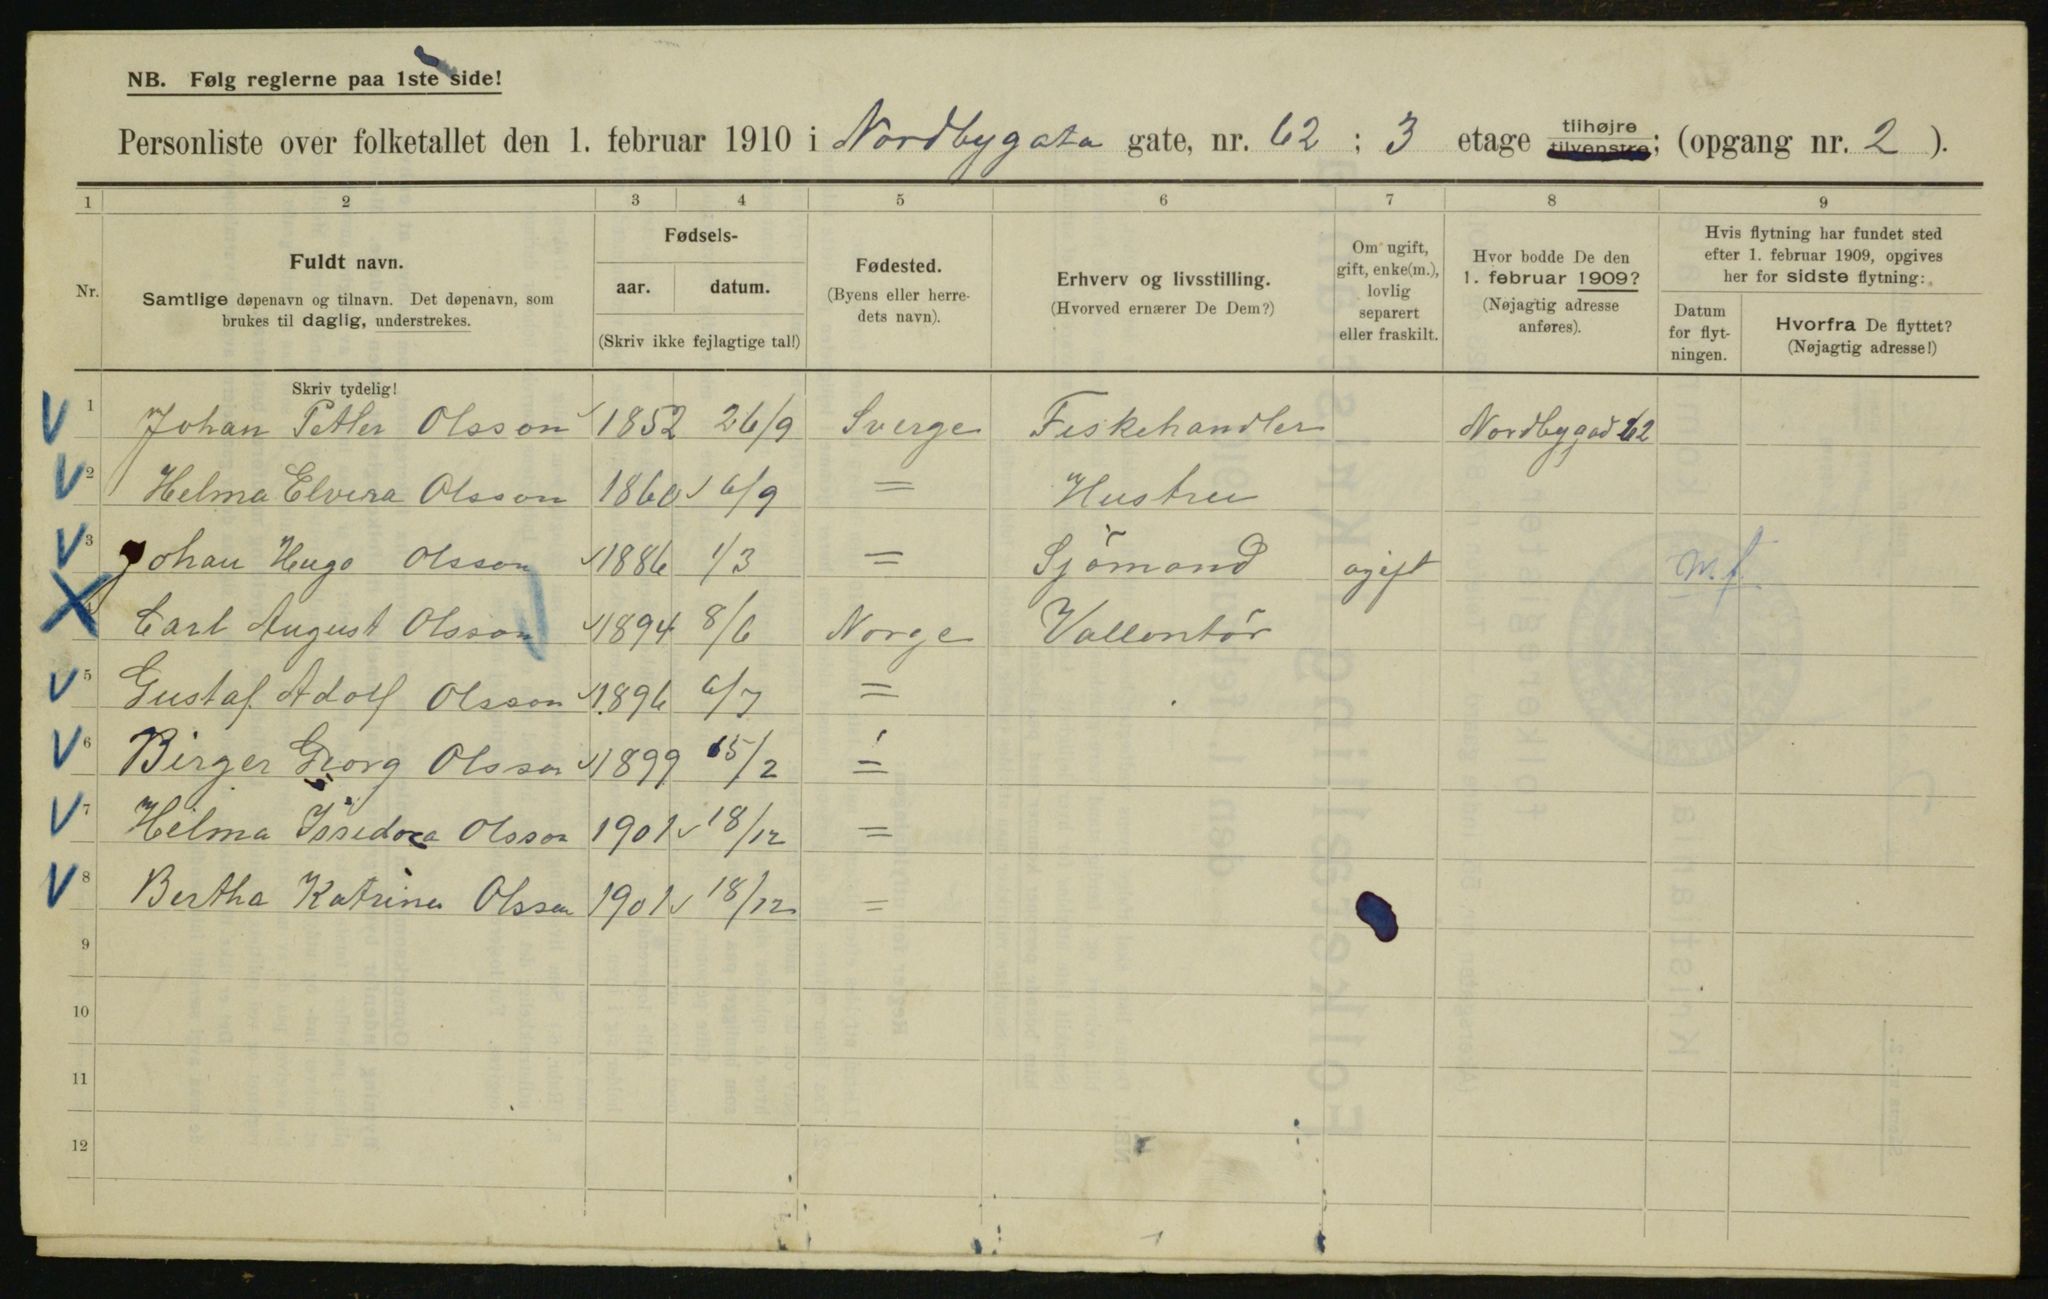 NB. Følg reglerne paa 1ste side!
Personliste over folketallet den 1. februar 1910 i Nordbygata gate, nr. 62 ; 3 etage tilhøjre tilvenstre; (opgang nr. 2 ).
1 2 3 4 5 6 7 8 9
Nr.
Fuldt navn.
Samtlige døpenavn og tilnavn. Det døpenavn, som
brukes til daglig, understrekes.
Fødsels-
aar. datum.
(Skriv ikke fejlagtige tal!)
Fødested.
(Byens eller herre-
dets navn).
Erhverv og livsstilling.
(Hvorved ernærer De Dem?)
Om ugift,
gift, enke(m.),
lovlig
separert
eller fraskilt.
Hvor bodde De den
1. februar 1909?
(Nøjagtig adresse
anføres).
Hvis flytning har fundet sted
efter 1. februar 1909, opgives
her for sidste flytning:
Datum
for flyt-
ningen.
Hvorfra De flyttet?
(Nøjagtig adresse!)
Skriv tydelig!
1 Johan Petter Olsson 1852 26/9 Sverge Fiskehandler Nordbygad 62
2 Helma Elvira Olsson 1860 6/9 = Hustru
3 Johan Hugo Olsson 1886 1/3 = Sjömand ogift m.f.
4 Carl August Olsson 1894 8/6 Norge Vallontör
5 Gustaf Adolf Olsson 1896 6/7 =
6 Birger Georg Olsson 1899 15/2 =
7 Helma Issedora Olsson 1901 18/12 =
8 Bertha Katrina Olsson 1901 18/12 =
9
10
11
12